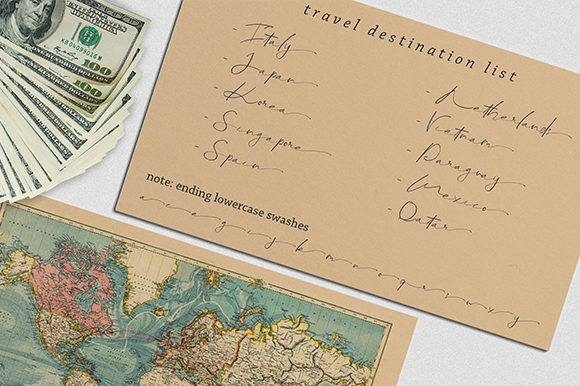 travel destination list
- Italy
- Japan
- Korea
- Singapore
- Spain
- Netherlands
- Vietnam
- Paraguay
- Mexico
- Qatar
note: ending lowercase swashes
100